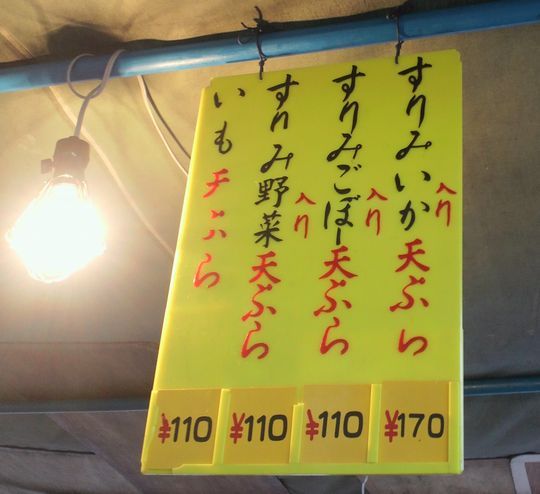 すりみいか入り天ぷら
¥170
すりみごぼー入り天ぷら
¥110
すりみ野菜入り天ぷら
¥110
いも天ぷら
¥110